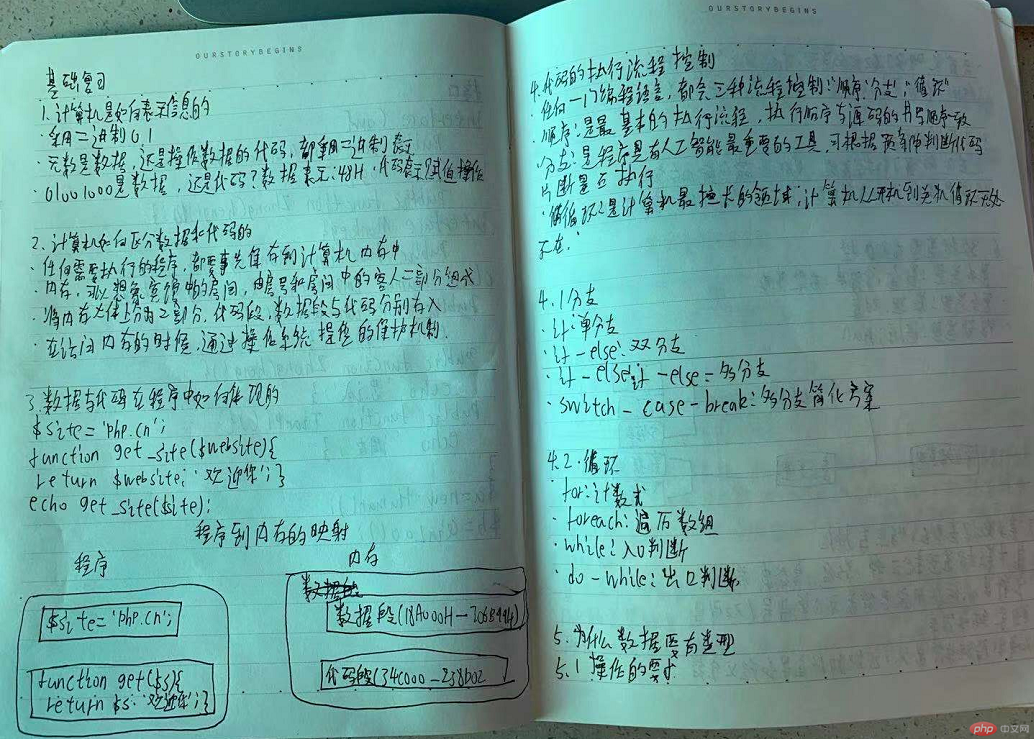 OURSTORYBEGINS
基础复习
1.计算机是如何表示信息的
·采用二进制01
·无数是数据,还是操作数据的代码,都采用二进制表示
·01001000是数据,还是代码?数据表示:48H,代码表示赋值操作
2.计算机如何区分数据和代码的
·任何需要执行的程序,都要事先保存到计算机内存中
·内存,可以想象宾馆中的房间,由房号和房间中的客人二部分组成
·将内存大体上分为二部分,代码段,数据段与代码分别存入
·在访问内存的时候,通过操作系统提供的保护机制.
3.数据与代码在程序中如何体现的
$site='php.cn';
function get_site($website){
return $website.'欢迎你';}
echo get_site($site);
程序到内存的映射
程序 内存
$site='php.cn';
function get($s){
return $s.'欢迎你';}
数据段(18A000H-206B494)
代码段(34C000-238b02
OURSTORYBEGINS
4.代码的执行流程控制
·任何一门编程语言,都会三种流程控制:"顺序"分支"循环"
·顺序:是最基本的执行流程,执行顺序与源码的书写顺序一致
·分支:是程序具有人工智能最重要的工具,可根据条件判断代码
片断是否执行
·循环:是计算机最擅长的领域,计算机从开机到关机循环无处
不在.
4.1分支
·if:单分支
·if-else:双分支
·if-else if-else=多分支
·switch-case-break:多分支简化方案
4.2.循环
·for:计数式
·foreach:遍历数组
·while:入口判断
·do-while:出口判断
5.为什么数据要有类型
5.1操作的要求
php 中文网